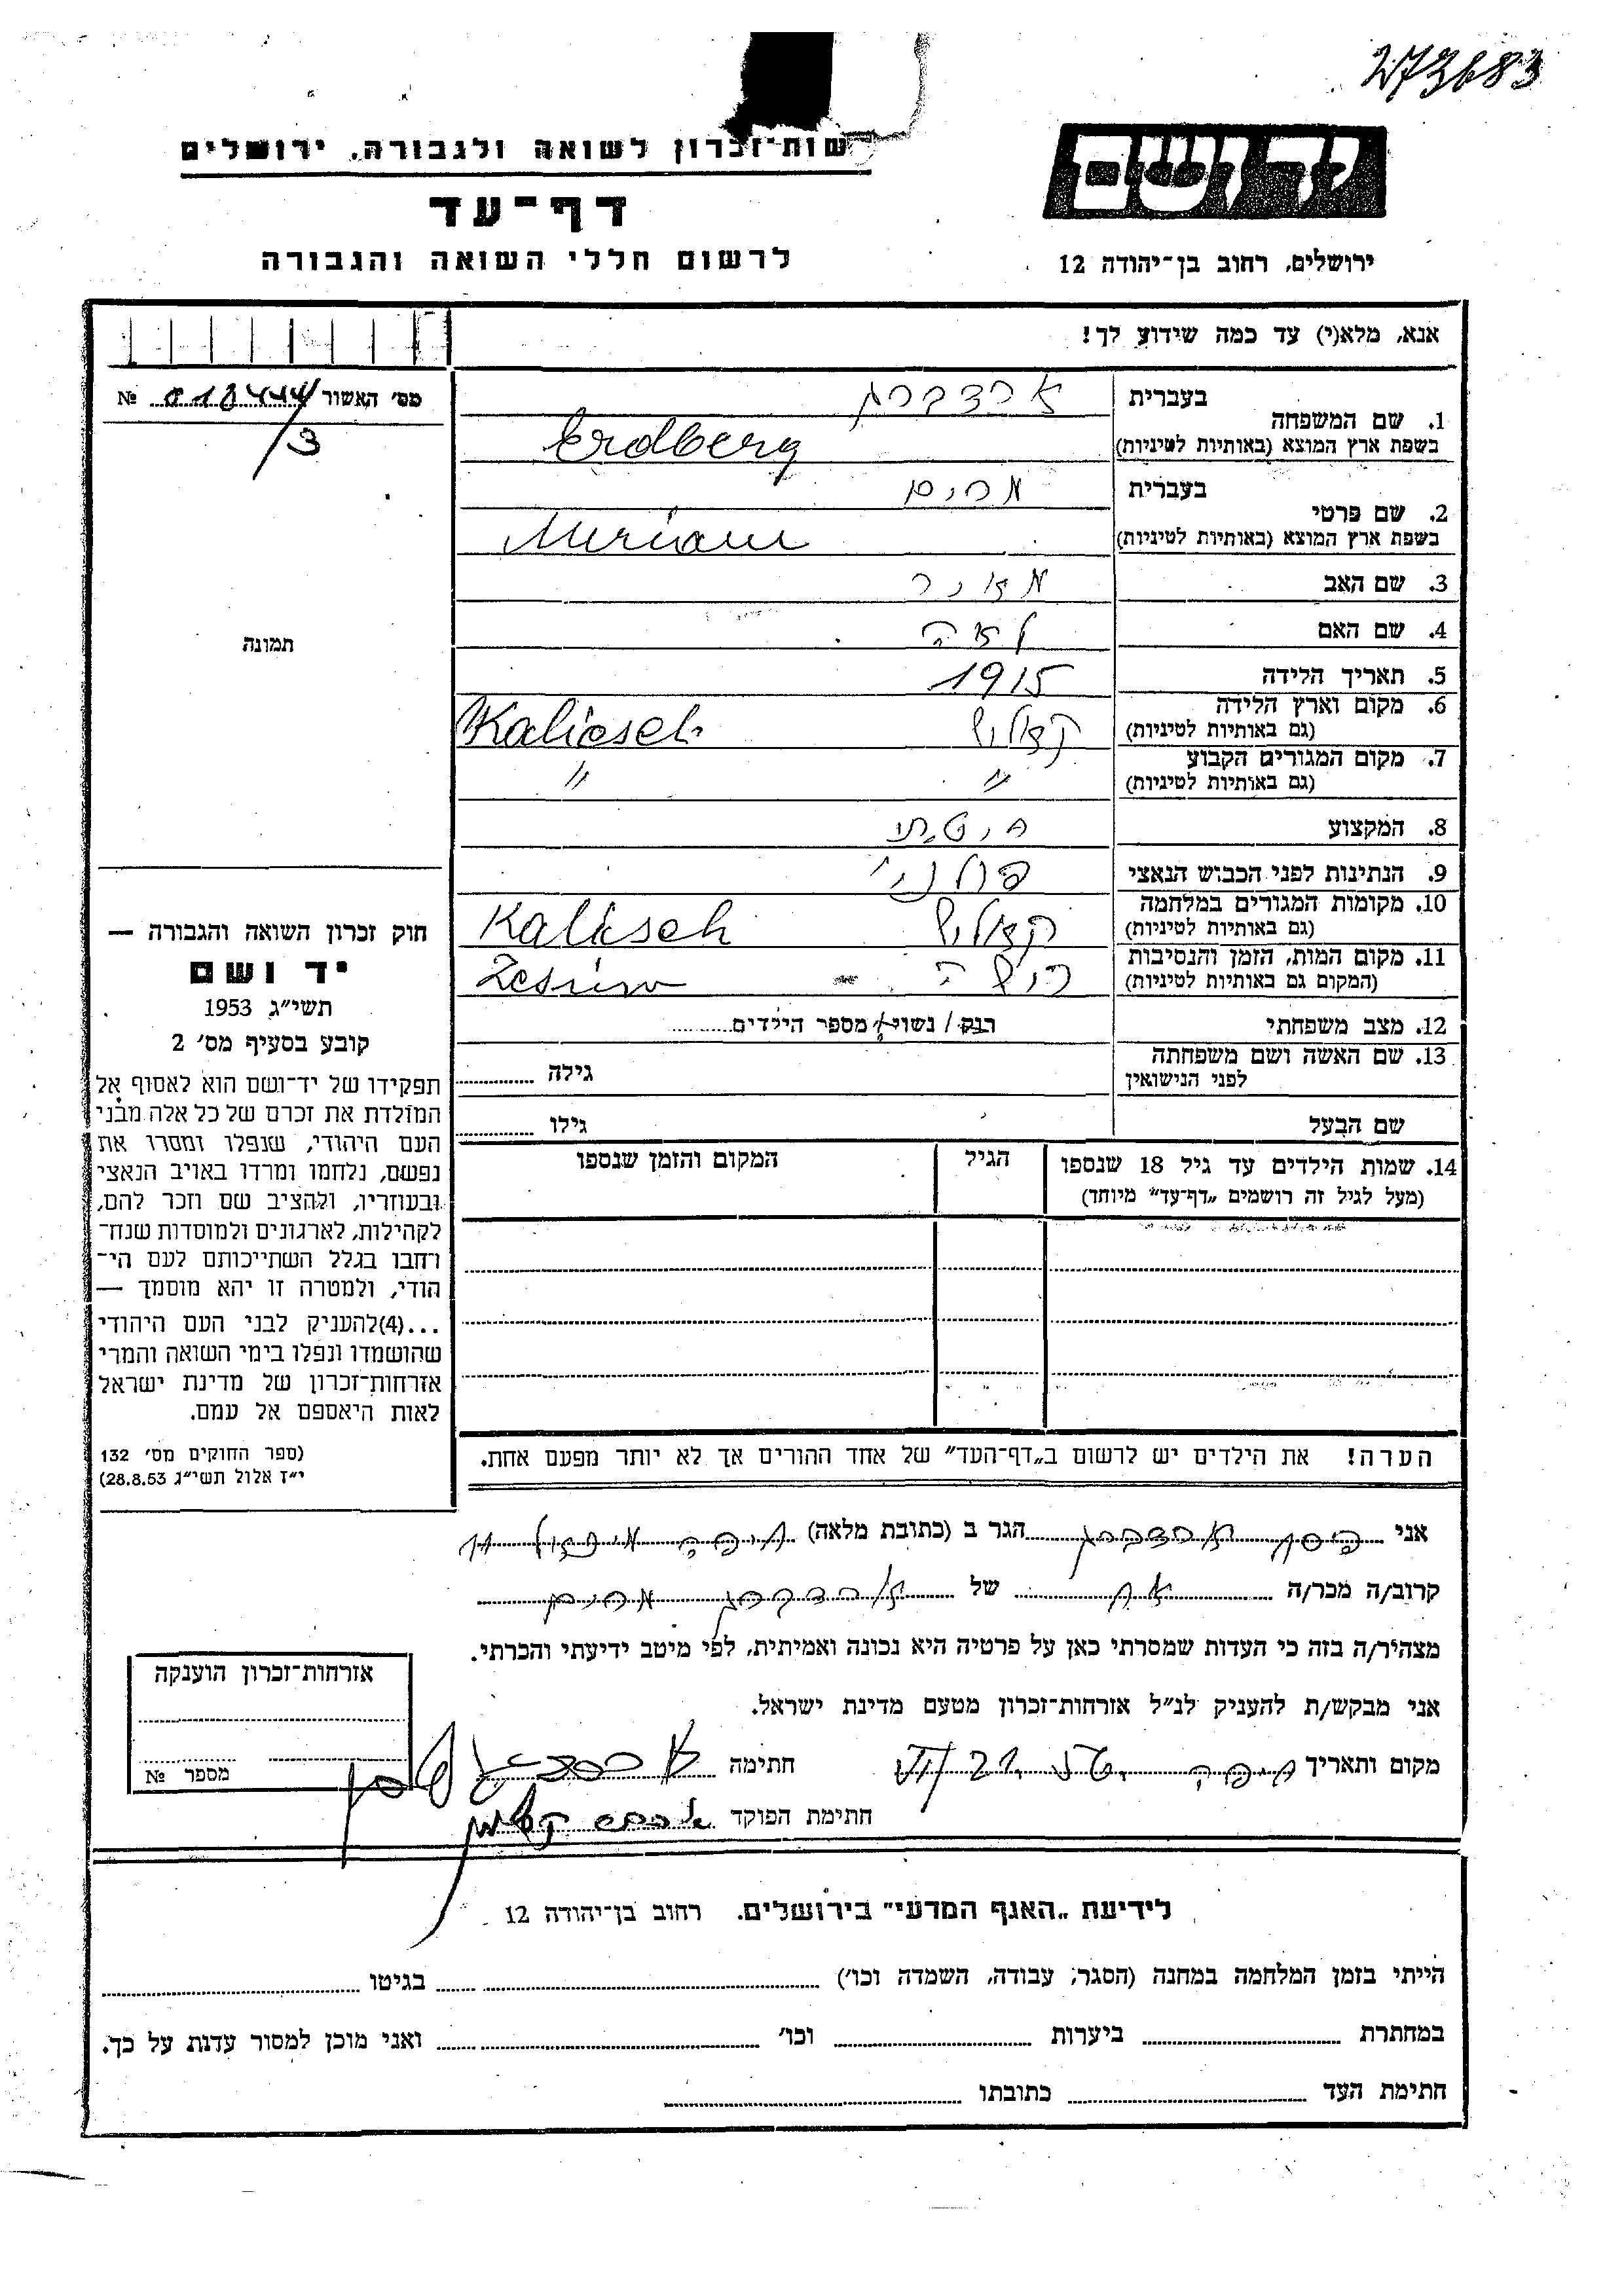 273683
שות־זכרון לשואה ולגבורה, ירושלים
יד ושם
דף־עד
לרשום חללי השואה והגבורה
ירושלים, רחוב בן־יהודה 12
אנא, מלא(י) עד כמה שידוע לך!
מס׳ האשור № 018444/3
1. שם המשפחה
בעברית ארדברג
בשפת ארץ המוצא (באותיות לטיניות) Erdberg
2. שם פרטי
בעברית מרים
בשפת ארץ המוצא (באותיות לטיניות) Miriam
3. שם האב מאיר
4. שם האם לאה
5. תאריך הלידה 1915
6. מקום וארץ הלידה
(גם באותיות לטיניות) קאליש Kaliesch
7. מקום המגורים הקבוע
(גם באותיות לטיניות) " "
8. המקצוע
9. הנתינות לפני הכבוש הנאצי פולני
10. מקומות המגורים במלחמה
(גם באותיות לטיניות) קאליש Kaliesch
11. מקום המות, הזמן והנסיבות
(המקום גם באותיות לטיניות)
12. מצב משפחתי רוק / נשוי / מספר הילדים
13. שם האשה ושם משפחתה
לפני הנישואין
גילה
שם הבעל גילו
14. שמות הילדים עד גיל 18 שנספו
(מעל לגיל זה רושמים „דף־עד" מיוחד)
הגיל
המקום והזמן שנספו
הערה! את הילדים יש לרשום ב„דף־העד" של אחד ההורים אך לא יותר מפעם אחת.
תמונה
חוק זכרון השואה והגבורה —
יד ושם
תשי״ג 1953
קובע בסעיף מס׳ 2
תפקידו של יד־ושם הוא לאסוף אל
המולדת את זכרם של כל אלה מבני
העם היהודי, שנפלו ומסרו את
נפשם, נלחמו ומרדו באויב הנאצי
ובעוזריו, ולהציב שם וזכר להם,
לקהילות, לארגונים ולמוסדות שנח־
רחבו בגלל השתייכותם לעם הי־
הודי, ולמטרה זו יהא מוסמך —
...(4)להעניק לבני העם היהודי
שהושמדו ונפלו בימי השואה והמרי
אזרחות־זכרון של מדינת ישראל
לאות היאספם אל עמם.
(ספר החוקים מס׳ 132
י״ז אלול תשי״ג 28.8.53)
אני ארדברג הגר ב (כתובת מלאה) חיפה
קרוב/ה מכר/ה אח של ארדברג מרים
מצהיר/ה בזה כי העדות שמסרתי כאן על פרטיה היא נכונה ואמיתית, לפי מיטב ידיעתי והכרתי.
אני מבקש/ת להעניק לנ״ל אזרחות־זכרון מטעם מדינת ישראל.
מקום ותאריך חיפה חתימה
חתימת הפוקד
אזרחות־זכרון הוענקה
מספר №
לידיעת „האגף המדעי" בירושלים, רחוב בן־יהודה 12
הייתי בזמן המלחמה במחנה (הסגר, עבודה, השמדה וכו׳) בגיטו
במחתרת ביערות וכו׳ ואני מוכן למסור עדות על כך.
חתימת העד כתובתו